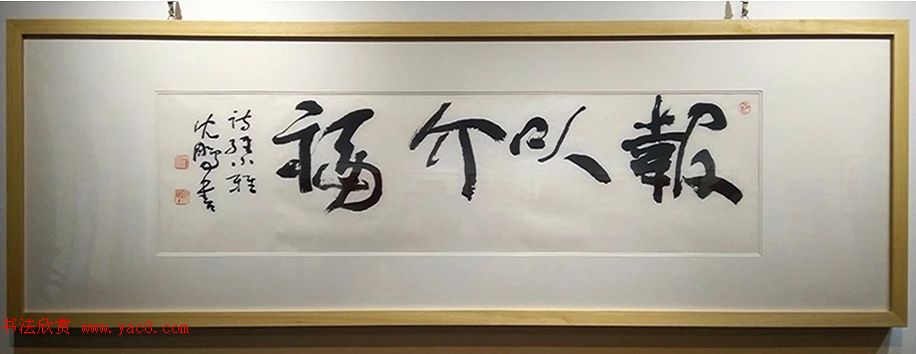 報以介福
詩經小雅
沈鵬書
书法欣赏 www.yac8.com